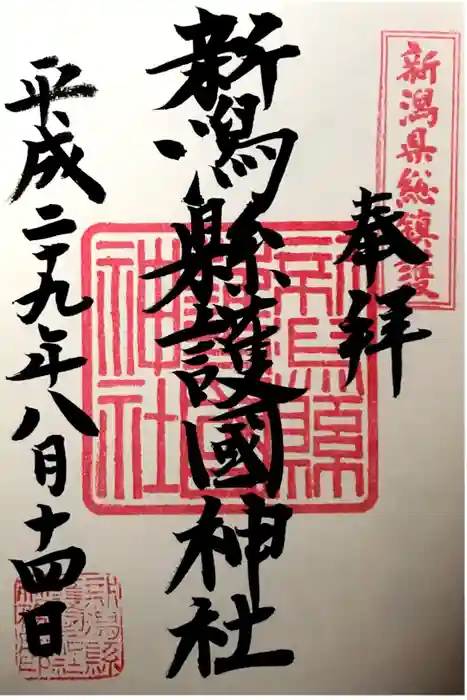 新潟県総鎮護
奉拝
新潟縣護國神社
平成二十九年八月十四日
新潟縣護國神社